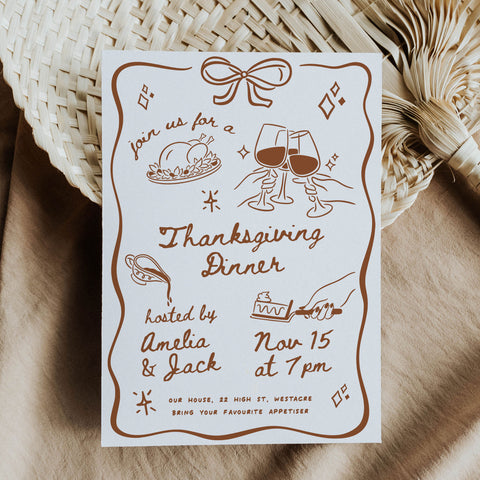 join us for a
Thanksgiving
Dinner
hosted by
Amelia
& Jack
Nov 15
at 7pm
OUR HOUSE, 22 HIGH ST, WESTACRE
BRING YOUR FAVOURITE APPETISER